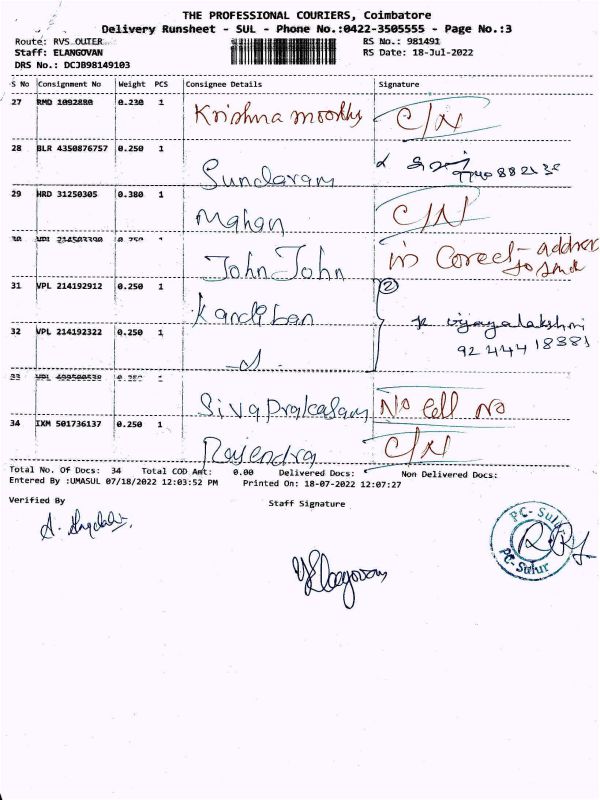 THE PROFESSIONAL COURIERS, Coimbatore
Delivery Runsheet - SUL - Phone No.:0422-3505555 - Page No.:3
Route: RVS OUTER RS No.: 981491
Staff: ELANGOVAN RS Date: 18-Jul-2022
DRS No.: DCJB98149103
S No Consignment No Weight PCS Consignee Details Signature
27 RMD 1092880 0.230 1 Krishna moorthy C/N
28 BLR 4350876757 0.250 1 Sundaram
29 HRD 31250305 0.380 1 Mahan C/N
30 VPL 1 John John in Corect - address
31 VPL 214192912 0.250 1 Kandiban 2
vijayalakshmi
32 VPL 214192322 0.250 1 92 444 18381
33 VPL 1 Sivaprakasam No Cell No
34 IXM 501736137 0.250 1 Rajendra C/N
Total No. Of Docs: 34 Total COD Amt: 0.00 Delivered Docs: Non Delivered Docs:
Entered By :UMASUL 07/18/2022 12:03:52 PM Printed On: 18-07-2022 12:07:27
Verified By Staff Signature
PC-Sulur
PC-Sulur